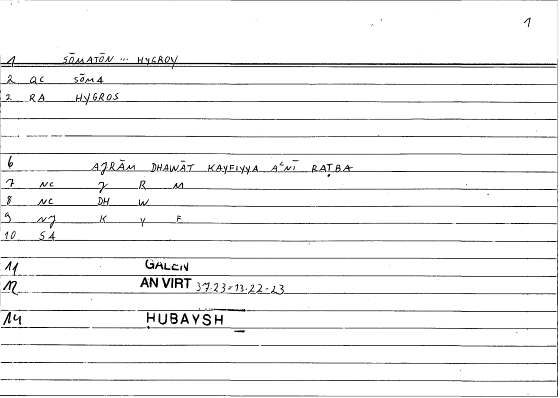 1
1 SŌMATŌN ... HYGROY
2 QC SŌMA
2 RA HYGROS
6 AJRĀM DHAWĀT KAYFIYYA AʿNĪ RAṬBA
7 NC J R M
8 NC DH W
9 NJ K Y F
10 SA
11 GALEN
12 AN VIRT 37.23=13.22-23
14 HUBAYSH